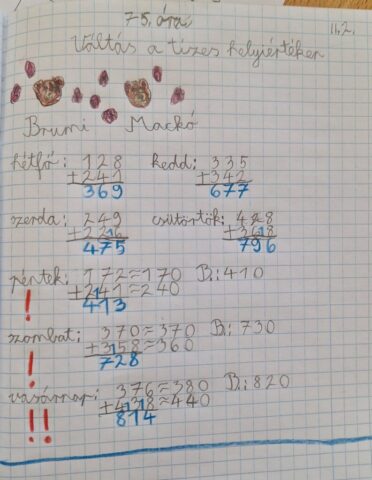 75. óra
11.2.
Váltás a tízes helyiértéken
Brumi Mackó
hétfő: 128 kedd: 335
+241 +342
369 677
szerda: 249 csütörtök: 428
+226 +368
475 796
péntek: 172≈170 B: 410
+241≈240
! 413
szombat: 370≈370 B: 730
+358≈360
! 728
vasárnap: 376≈380 B: 820
+438≈440
!! 814